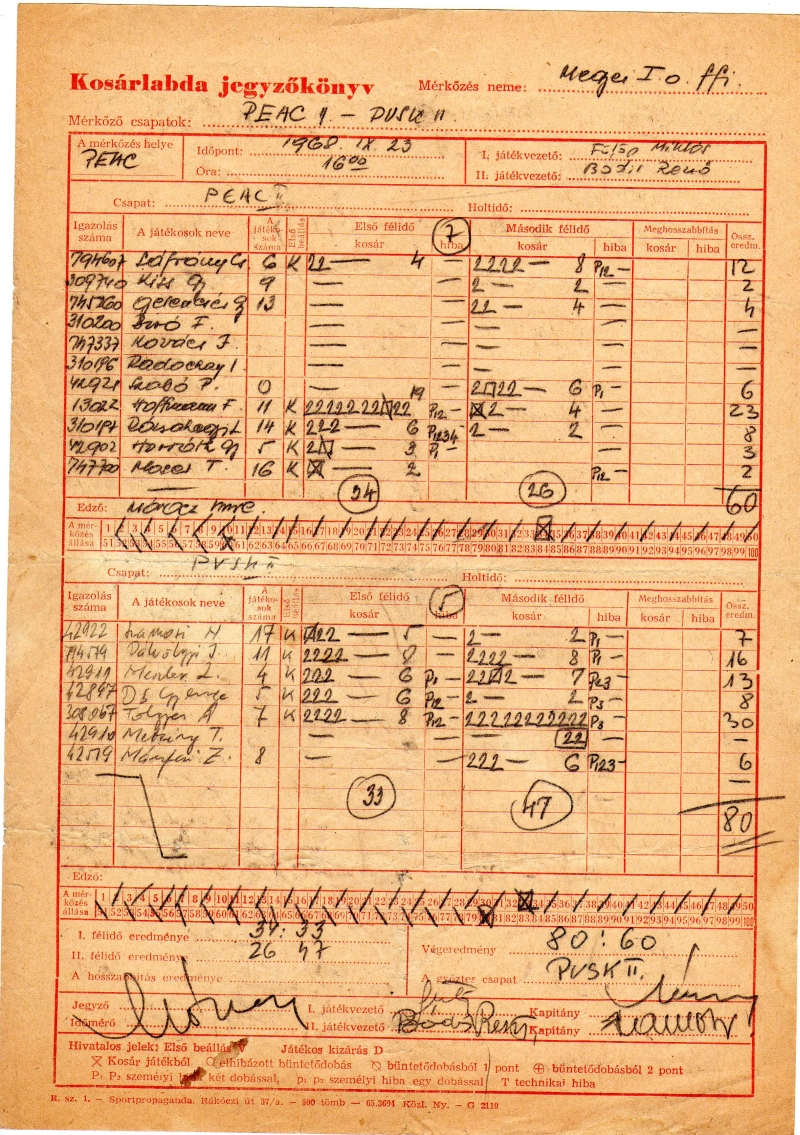 Kosárlabda jegyzőkönyv Mérkőzés neme: Megei I. o. ffi.
Mérkőző csapatok: PEAC II. – PVSK II
A mérkőzés helye PEAC Időpont: 1968. IX. 23 I. játékvezető: Fülöp Miklós
Óra: 16 00 II. játékvezető: Bodis Renó
Csapat: PEAC II Holtidő:
Igazolás száma A játékosok neve A játékosok száma Első beállás Első félidő kosár 7 hiba Második félidő kosár hiba Meghosszabbítás kosár hiba Össz. eredm.
794607 Sáfrány Gs 6 K 22 — 4 — 2222 — 8 P12 — 12
309740 Kiss Gy 9 — — 2 — 2 — 2
745260 Gelencsér Gy 13 — — 22 — 4 — 4
310200 Biró F. — — — — —
747337 Kovács J. — — — — —
310196 Radoczay I. — — — — —
42921 Szabó P. 0 — — 2222 — 6 P1 — 6
13022 Hoffmann F. 11 K 2222222222 19 P12 — 2 — 4 — 23
310191 14 K 222 — 6 P1234 2 — 2 — 8
42902 Horváth Gy 5 K 2 — 3 P1 — — 3
747700 T. 16 K — 2 P12 — 2
34 26 60
Edző: Mórocz Imre.
A mérkőzés állása 1 2 3 4 5 6 7 8 9 10 11 12 13 14 15 16 17 18 19 20 21 22 23 24 25 26 27 28 29 30 31 32 33 34 35 36 37 38 39 40 41 42 43 44 45 46 47 48 49 50
51 52 53 54 55 56 57 58 59 60 61 62 63 64 65 66 67 68 69 70 71 72 73 74 75 76 77 78 79 80 81 82 83 84 85 86 87 88 89 90 91 92 93 94 95 96 97 98 99 100
Csapat: PVSK II Holtidő:
Igazolás száma A játékosok neve A játékosok száma Első beállás Első félidő kosár 5 hiba Második félidő kosár hiba Meghosszabbítás kosár hiba Össz. eredm.
42922 H 17 K 122 — 5 — 2 — 2 P1 — 7
J. 11 K 2222 — 8 — 2222 — 8 P1 — 16
42911 4 K 222 — 6 P1 — 2212 — 7 P23 — 13
42897 5 K 222 — 6 P12 2 — 2 P3 — 8
308067 Tolgyes A 7 K 2222 — 8 P12 — 22222222222 P3 30
42910 T. — — 22 — —
42519 Z. 8 — — 222 — 6 P123 — 6
—
33 47 80
Edző:
A mérkőzés állása 1 2 3 4 5 6 7 8 9 10 11 12 13 14 15 16 17 18 19 20 21 22 23 24 25 26 27 28 29 30 31 32 33 34 35 36 37 38 39 40 41 42 43 44 45 46 47 48 49 50
51 52 53 54 55 56 57 58 59 60 61 62 63 64 65 66 67 68 69 70 71 72 73 74 75 76 77 78 79 80 81 82 83 84 85 86 87 88 89 90 91 92 93 94 95 96 97 98 99 100
I. félidő eredménye 34 : 33
II. félidő eredménye 26 47 Végeredmény 80 : 60
A hosszabbítás eredménye A győztes csapat PVSK II.
Jegyző I. játékvezető Kapitány
Időmérő II. játékvezető Kapitány
Hivatalos jelek: Első beállás V Játékos kizárás D
Kosár játékból elhibázott büntetődobás büntetődobásból 1 pont büntetődobásból 2 pont
P1 P2 személyi hiba két dobással, p1 p2 személyi hiba egy dobással T technikai hiba
R. sz. 1. — Sportpropaganda. Rákóczi út 57/a. — 500 tömb — 65.3694 Közl. Ny. — G 2110